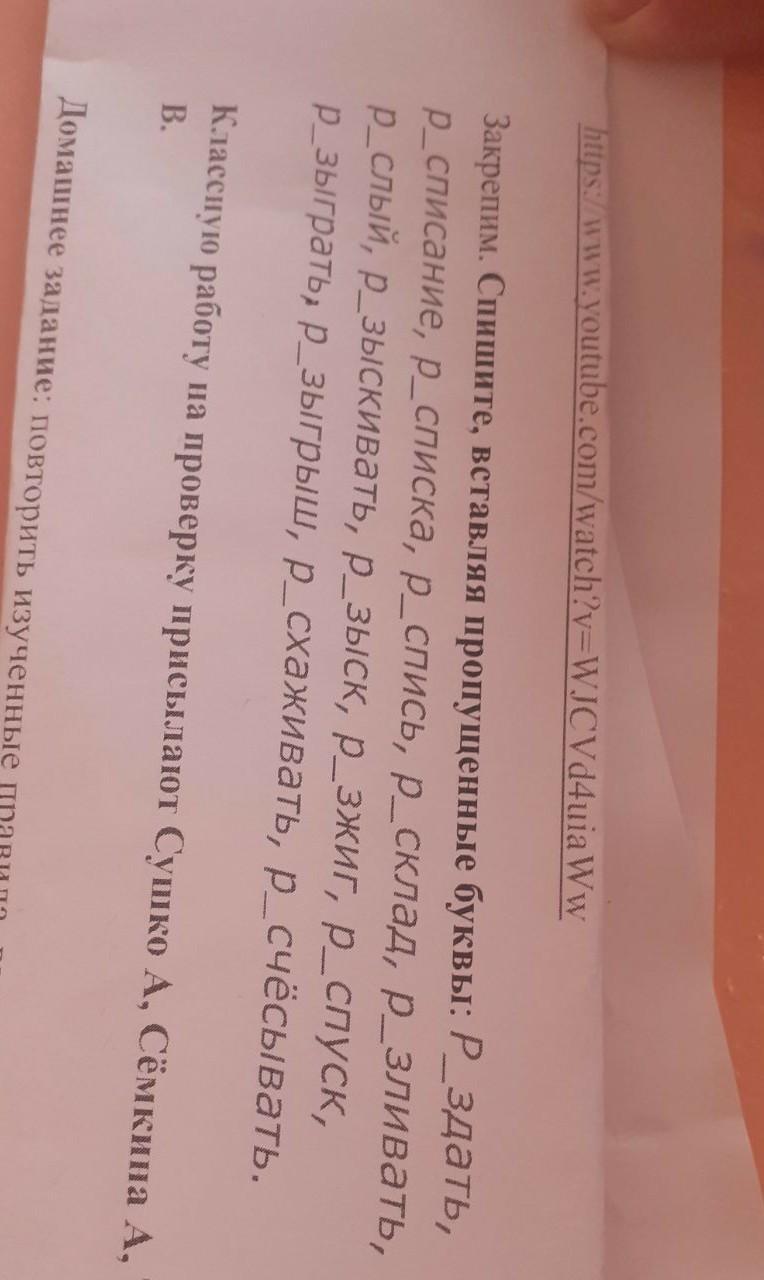 https://www.youtube.com/watch?v=WJCVd4uiaWw
Закрепим. Спишите, вставляя пропущенные буквы: Р_здать,
р_списание, р_списка, р_спись, р_склад, р_зливать,
р_слый, р_зыскивать, р_зыск, р_зжиг, р_спуск,
р_зыграть, р_зыгрыш, р_схаживать, р_счёсывать.
Классную работу на проверку присылают Сушко А, Сёмкина А,
В.
Домашнее задание: повторить изученные правила